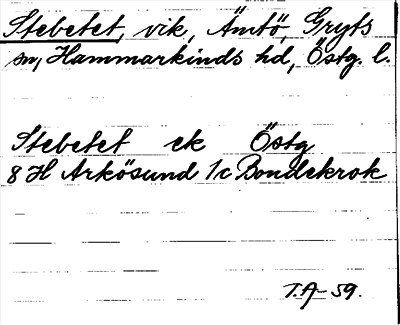 Stebetet, vik, Ämtö, Gryts
sn, Hammarkinds hd, Östg. l.
Stebetet ek Östg
8 H Arkösund 1c Bondekrok
T.A-59.